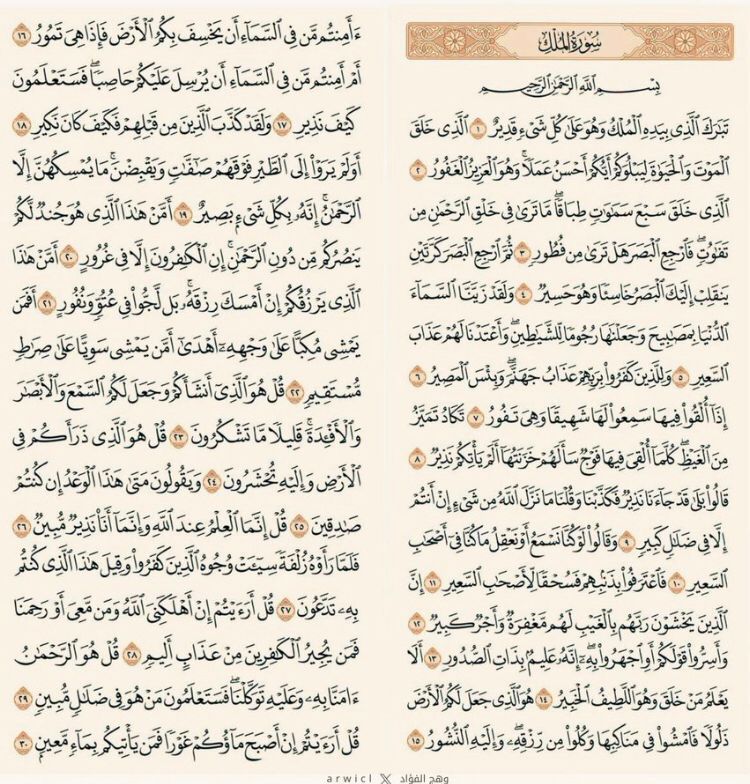 سُورَةُ المُلْكِ
بِسْمِ اللَّهِ الرَّحْمَٰنِ الرَّحِيمِ
تَبَٰرَكَ ٱلَّذِى بِيَدِهِ ٱلْمُلْكُ وَهُوَ عَلَىٰ كُلِّ شَىْءٍ قَدِيرٌ ١ ٱلَّذِى خَلَقَ
ٱلْمَوْتَ وَٱلْحَيَوٰةَ لِيَبْلُوَكُمْ أَيُّكُمْ أَحْسَنُ عَمَلًا ۚ وَهُوَ ٱلْعَزِيزُ ٱلْغَفُورُ ٢
ٱلَّذِى خَلَقَ سَبْعَ سَمَٰوَٰتٍ طِبَاقًا ۖ مَّا تَرَىٰ فِى خَلْقِ ٱلرَّحْمَٰنِ مِن
تَفَٰوُتٍ ۖ فَٱرْجِعِ ٱلْبَصَرَ هَلْ تَرَىٰ مِن فُطُورٍ ٣ ثُمَّ ٱرْجِعِ ٱلْبَصَرَ كَرَّتَيْنِ
يَنقَلِبْ إِلَيْكَ ٱلْبَصَرُ خَاسِئًا وَهُوَ حَسِيرٌ ٤ وَلَقَدْ زَيَّنَّا ٱلسَّمَآءَ
ٱلدُّنْيَا بِمَصَٰبِيحَ وَجَعَلْنَٰهَا رُجُومًا لِّلشَّيَٰطِينِ ۖ وَأَعْتَدْنَا لَهُمْ عَذَابَ
ٱلسَّعِيرِ ٥ وَلِلَّذِينَ كَفَرُوا۟ بِرَبِّهِمْ عَذَابُ جَهَنَّمَ ۖ وَبِئْسَ ٱلْمَصِيرُ ٦
إِذَآ أُلْقُوا۟ فِيهَا سَمِعُوا۟ لَهَا شَهِيقًا وَهِىَ تَفُورُ ٧ تَكَادُ تَمَيَّزُ
مِنَ ٱلْغَيْظِ ۖ كُلَّمَآ أُلْقِىَ فِيهَا فَوْجٌ سَأَلَهُمْ خَزَنَتُهَآ أَلَمْ يَأْتِكُمْ نَذِيرٌ ٨
قَالُوا۟ بَلَىٰ قَدْ جَآءَنَا نَذِيرٌ فَكَذَّبْنَا وَقُلْنَا مَا نَزَّلَ ٱللَّهُ مِن شَىْءٍ إِنْ أَنتُمْ
إِلَّا فِى ضَلَٰلٍ كَبِيرٍ ٩ وَقَالُوا۟ لَوْ كُنَّا نَسْمَعُ أَوْ نَعْقِلُ مَا كُنَّا فِىٓ أَصْحَٰبِ
ٱلسَّعِيرِ ١٠ فَٱعْتَرَفُوا۟ بِذَنۢبِهِمْ فَسُحْقًا لِّأَصْحَٰبِ ٱلسَّعِيرِ ١١ إِنَّ
ٱلَّذِينَ يَخْشَوْنَ رَبَّهُم بِٱلْغَيْبِ لَهُم مَّغْفِرَةٌ وَأَجْرٌ كَبِيرٌ ١٢
وَأَسِرُّوا۟ قَوْلَكُمْ أَوِ ٱجْهَرُوا۟ بِهِۦٓ ۖ إِنَّهُۥ عَلِيمٌۢ بِذَاتِ ٱلصُّدُورِ ١٣ أَلَا
يَعْلَمُ مَنْ خَلَقَ وَهُوَ ٱللَّطِيفُ ٱلْخَبِيرُ ١٤ هُوَ ٱلَّذِى جَعَلَ لَكُمُ ٱلْأَرْضَ
ذَلُولًا فَٱمْشُوا۟ فِى مَنَاكِبِهَا وَكُلُوا۟ مِن رِّزْقِهِۦ ۖ وَإِلَيْهِ ٱلنُّشُورُ ١٥
ءَأَمِنتُم مَّن فِى ٱلسَّمَآءِ أَن يَخْسِفَ بِكُمُ ٱلْأَرْضَ فَإِذَا هِىَ تَمُورُ ١٦
أَمْ أَمِنتُم مَّن فِى ٱلسَّمَآءِ أَن يُرْسِلَ عَلَيْكُمْ حَاصِبًا ۖ فَسَتَعْلَمُونَ
كَيْفَ نَذِيرِ ١٧ وَلَقَدْ كَذَّبَ ٱلَّذِينَ مِن قَبْلِهِمْ فَكَيْفَ كَانَ نَكِيرِ ١٨
أَوَلَمْ يَرَوْا۟ إِلَى ٱلطَّيْرِ فَوْقَهُمْ صَٰٓفَّٰتٍ وَيَقْبِضْنَ ۚ مَا يُمْسِكُهُنَّ إِلَّا
ٱلرَّحْمَٰنُ ۚ إِنَّهُۥ بِكُلِّ شَىْءٍۭ بَصِيرٌ ١٩ أَمَّنْ هَٰذَا ٱلَّذِى هُوَ جُندٌ لَّكُمْ
يَنصُرُكُم مِّن دُونِ ٱلرَّحْمَٰنِ ۚ إِنِ ٱلْكَٰفِرُونَ إِلَّا فِى غُرُورٍ ٢٠ أَمَّنْ هَٰذَا
ٱلَّذِى يَرْزُقُكُمْ إِنْ أَمْسَكَ رِزْقَهُۥ ۚ بَل لَّجُّوا۟ فِى عُتُوٍّ وَنُفُورٍ ٢١ أَفَمَن
يَمْشِى مُكِبًّا عَلَىٰ وَجْهِهِۦٓ أَهْدَىٰٓ أَمَّن يَمْشِى سَوِيًّا عَلَىٰ صِرَٰطٍ
مُّسْتَقِيمٍ ٢٢ قُلْ هُوَ ٱلَّذِىٓ أَنشَأَكُمْ وَجَعَلَ لَكُمُ ٱلسَّمْعَ وَٱلْأَبْصَٰرَ
وَٱلْأَفْـِٔدَةَ ۖ قَلِيلًا مَّا تَشْكُرُونَ ٢٣ قُلْ هُوَ ٱلَّذِى ذَرَأَكُمْ فِى
ٱلْأَرْضِ وَإِلَيْهِ تُحْشَرُونَ ٢٤ وَيَقُولُونَ مَتَىٰ هَٰذَا ٱلْوَعْدُ إِن كُنتُمْ
صَٰدِقِينَ ٢٥ قُلْ إِنَّمَا ٱلْعِلْمُ عِندَ ٱللَّهِ وَإِنَّمَآ أَنَا۠ نَذِيرٌ مُّبِينٌ ٢٦
فَلَمَّا رَأَوْهُ زُلْفَةً سِيٓـَٔتْ وُجُوهُ ٱلَّذِينَ كَفَرُوا۟ وَقِيلَ هَٰذَا ٱلَّذِى كُنتُم
بِهِۦ تَدَّعُونَ ٢٧ قُلْ أَرَءَيْتُمْ إِنْ أَهْلَكَنِىَ ٱللَّهُ وَمَن مَّعِىَ أَوْ رَحِمَنَا
فَمَن يُجِيرُ ٱلْكَٰفِرِينَ مِنْ عَذَابٍ أَلِيمٍ ٢٨ قُلْ هُوَ ٱلرَّحْمَٰنُ
ءَامَنَّا بِهِۦ وَعَلَيْهِ تَوَكَّلْنَا ۖ فَسَتَعْلَمُونَ مَنْ هُوَ فِى ضَلَٰلٍ مُّبِينٍ ٢٩
قُلْ أَرَءَيْتُمْ إِنْ أَصْبَحَ مَآؤُكُمْ غَوْرًا فَمَن يَأْتِيكُم بِمَآءٍ مَّعِينٍۭ ٣٠
وهج الفؤاد X arwicl